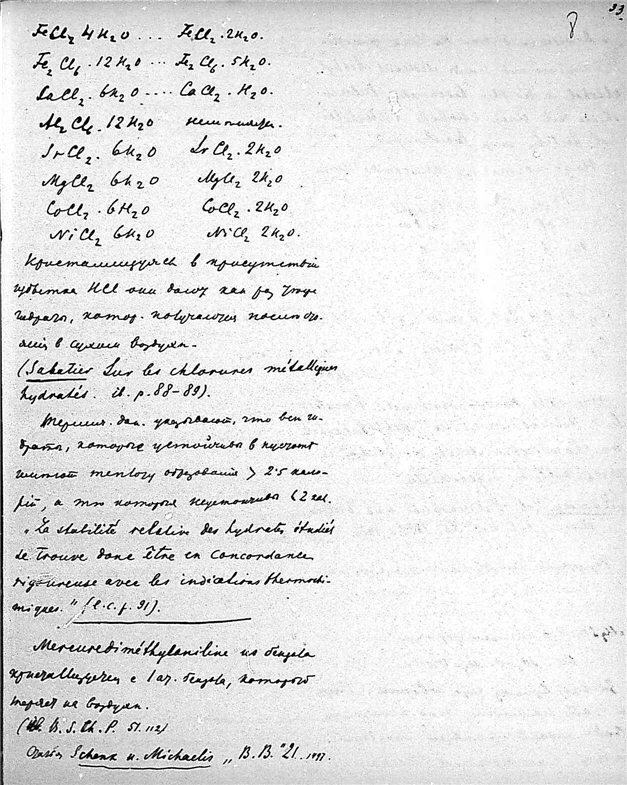 33.
8
FeCl2 4H2O ... FeCl2. 2H2O.
Fe2Cl6. 12H2O ... Fe2Cl6. 5H2O.
CaCl2. 6H2O .... CaCl2. H2O.
Al2Cl6. 12H2O
SrCl2. 6H2O SrCl2. 2H2O
MgCl2 6H2O MgCl2 2H2O
CoCl2. 6H2O CoCl2. 2H2O
NiCl2 6H2O NiCl2 2H2O.
Кристаллизуясь в присутствіи
избытка HCl они дают как раз
гидраты, котор. получаются
в сухом воздухе.
(Sabatier Sur les chlorures métalliques
hydratés. ib. p. 88-89).
Термич. дан. указывают, что все ги-
драты, которые устойчивы в пустоте
имеют теплоту образования > 2.5 кало-
рій, а те которые неустойчивы < 2 кал.
"La stabilité relative des hydrates étudiés
se trouve donc être en concordance
rigoureuse avec les indications thermochi-
miques." (l. c. p. 91).
Mercurediméthylaniline из бензола
кристаллизуется с 1 ач. бензола, который
теряет на воздухе.
(B. S. Ch. P. 51. 112)
Schenk и. Michaelis "B.B." 21.